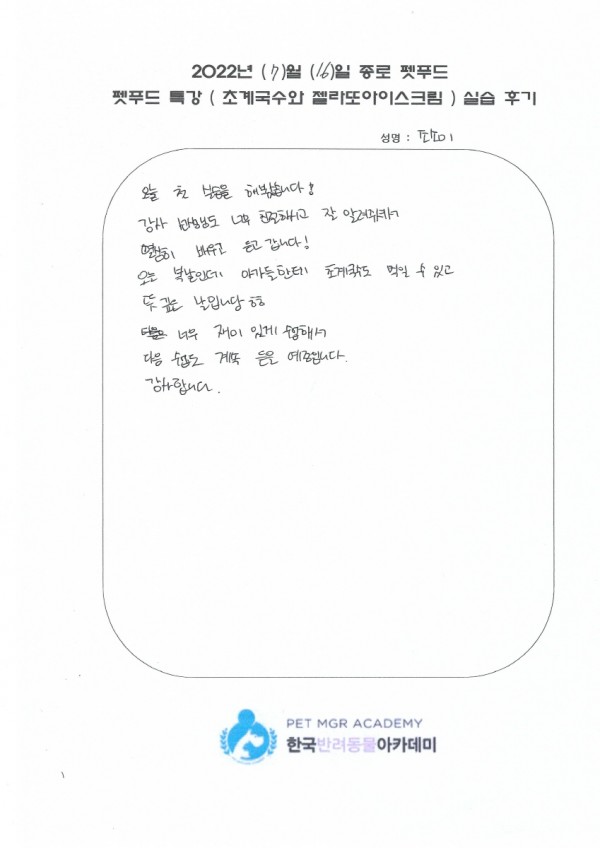 2022년 (7)월 (16)일 종로 펫푸드
펫푸드 특강 ( 초계국수와 젤라또아이스크림 ) 실습 후기
성명 :
오늘 첫 실습을 해봤습니다!
강사 너무 친절하시고 잘 알려주셔서
열심히 배우고 갑니다!
오늘 복날인데 아가들한테 초계국수도 먹일 수 있고
뜻 깊은 날입니당 ㅎㅎ
너무 재미 있게 수업해서
다음 수업도 계속 들을 예정입니다.
감사합니다.
PET MGR ACADEMY
한국반려동물아카데미